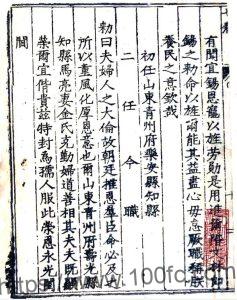 有聞宜錫恩寵以旌勞勩是用進
錫之勅命以旌爾能其益盡心毋怠厥職稱朕
養民之意欽哉
初任山東青州府樂安縣知縣
二任今職
勅曰夫婦人之大倫故朝廷推恩羣臣命必及之
所以重風化厚恩意也爾山東青州府壽光縣
知縣馬亮妻金氏克勤婦道善相其夫夫既顯
榮爾宜偕貴茲特封爲孺人服此榮恩永光閨
閫